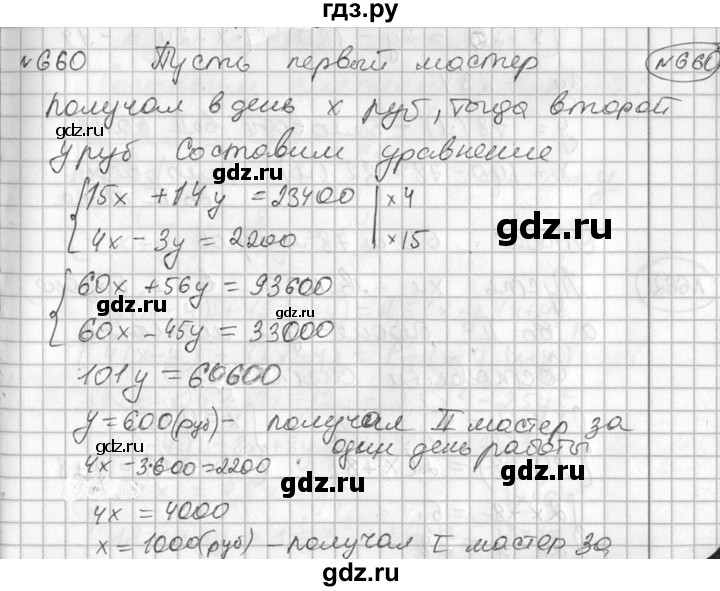 гдз.ру
№660 Пусть первый мастер №660
получал в день x руб, тогда второй
gdz.ru gdz.ru
y руб Составим уравнение
gdz.ru
15x + 14y = 23400 | x 4
4x - 3y = 2200 | x 15
gdz.ru
60x + 56y = 93600
gdz.ru gdz.ru
60x - 45y = 33000
101y = 60600
y = 600 (руб) - получал II мастер за
один день работы
gdz.ru gdz.ru
4x - 3·600 = 2200
gdz.ru
4x = 4000
gdz.ru
x = 1000 (руб) - получал I мастер за
гдз.ру